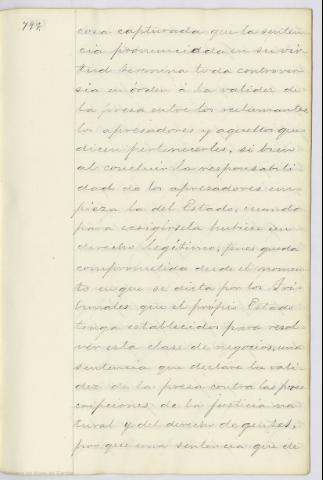 cosa capturada que la senten-
cia pronunciada en su vir-
tud termina toda controver-
sia en órden á la validez de
la presa entre los reclamantes,
los apresadores y aquellos que
dicen pertenecerles, si bien
al concluir la responsabili-
dad de los apresadores em-
pieza la del Estado, cuando
para ecsigírsela hubiese un
derecho legítimo, pues queda
comprometida desde el momen-
to en que se dicta por los Tri-
bunales que el própio Estado
tenga establecidos para resol-
ver esta clase de negocios, una
sentencia que declare la vali-
dez de la presa contra las pres-
cripciones de la justicia na-
tural y del derecho de gentes,
porque una sentencia que de